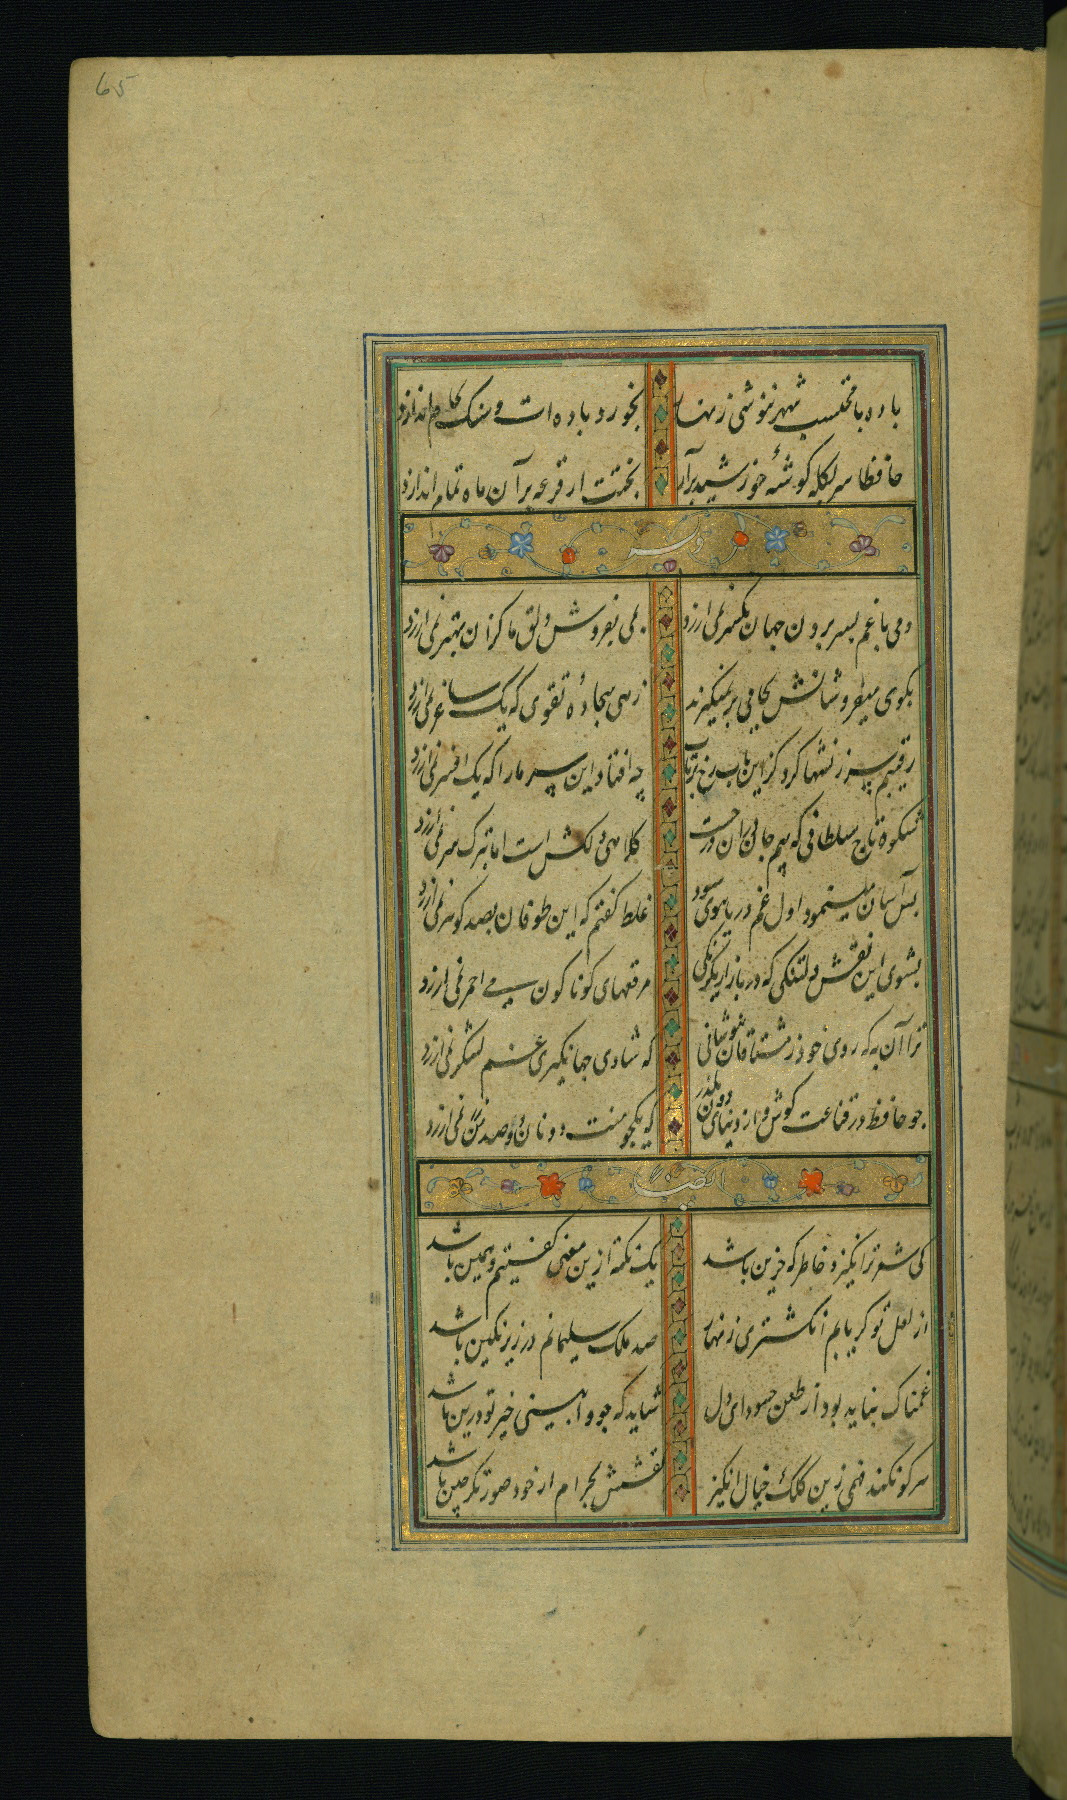 65
باده با محتسب شهر ننوشی زنهار بخورد باده ات و سنک بجام اندازد
حافظا سر ز کله کوشهٔ خورشید برآر بختت ار قرعه برآن ماه تمام اندازد
دمی با غم بسر بردن جهان یکسر نمی ارزد بمی بفروش دلق ما کزان بهتر نمی ارزد
بکوی میفروشانش بجامی بر نمیکیرند زهی سجادهٔ تقوی که یک ساغر نمی ارزد
رقیبم سرزنشها کرد کز این باب رخ برتاب چه افتاد این سر ما را که یک افسر نمی ارزد
شکوه تاج سلطانی که بیم جان در آن درجست کلاهی دلکش است اما بترک سر نمی ارزد
بس آسان مینمود اول غم دریا ببوی سود غلط کفتم که این طوفان بصد کوهر نمی ارزد
بشوی این نقش دلتنکی که در بازار یکرنکی مرقعهای کوناکون می احمر نمی ارزد
ترا آن به که روی خود ز مشتاقان بپوشانی که شادی جهانکیری غم لشکر نمی ارزد
چو حافظ در قناعت کوش و از دنیای دون بکذر که یکجو منت دونان دو صد من زر نمی ارزد
ایضا
کی شعر تر انکیزد خاطر که حزین باشد یک نکته ازین معنی کفتیم و همین باشد
از لعل تو کر یابم انکشتری زنهار صد ملک سلیمانم در زیر نکین باشد
غمناک نباید بود از طعن حسود ای دل شاید که چو وا بینی خیر تو درین باشد
هر کو نکند فهمی زین کلک خیال انکیز نقشش بحرام ار خود صورتکر چین باشد